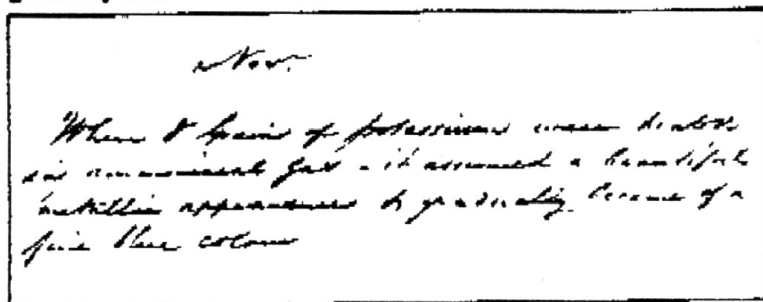 Nov.
When 8 Grains of potassium were heated
in ammoniacal gas - it assumed a beautiful
metallic appearance & gradually became of a
fine blue colour